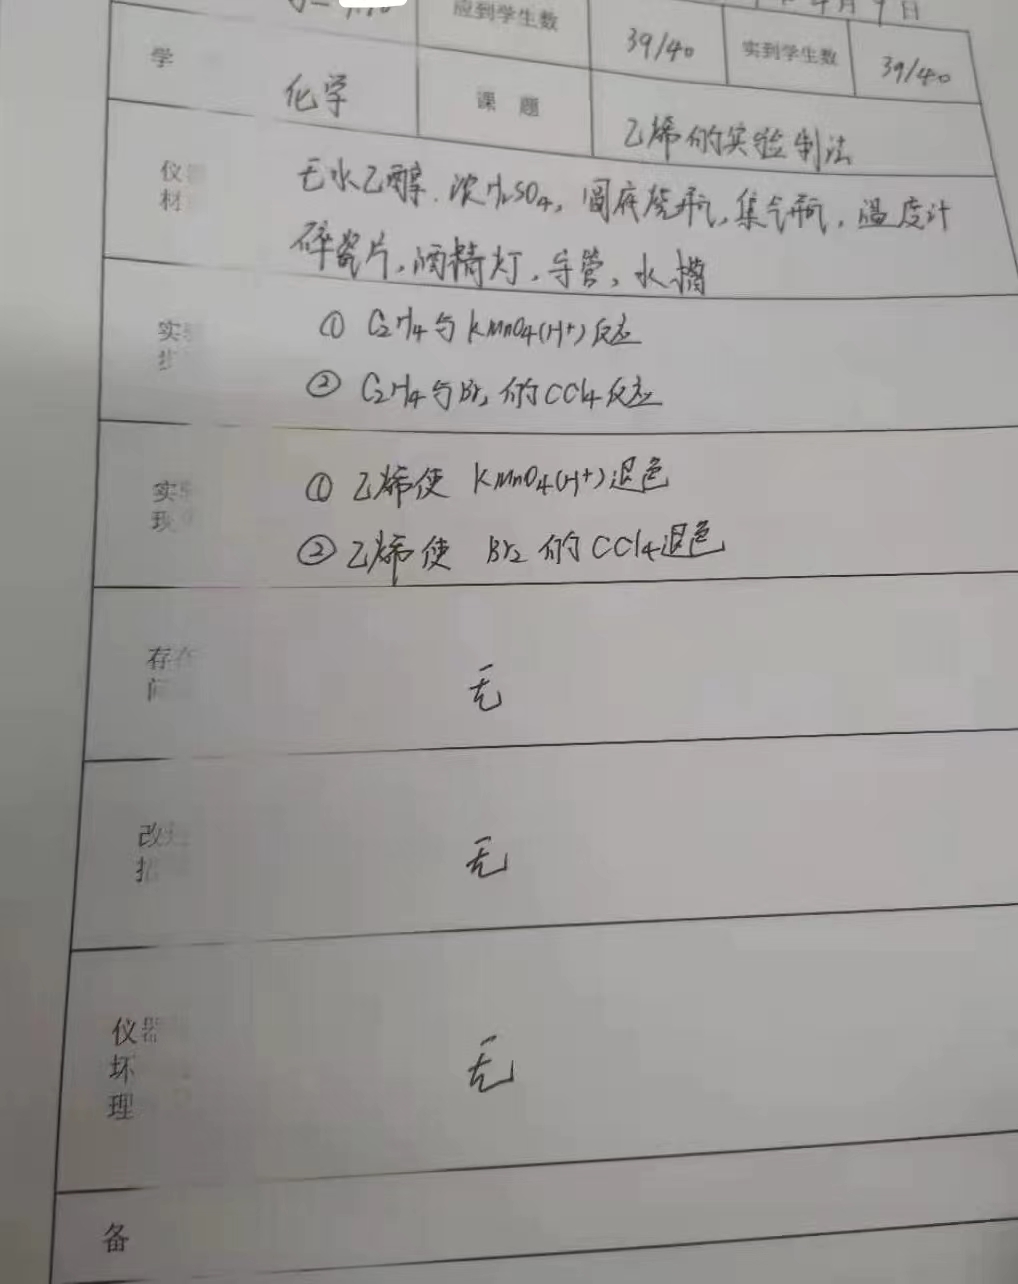 应到学生数 39/40 实到学生数 39/40
学 化学 课 题 乙烯的实验制法
仪器 无水乙醇.浓H₂SO₄,圆底烧瓶,集气瓶,温度计
材 碎瓷片,酒精灯,导管,水槽
实验 ① C₂H₄与KMnO₄(H+)反应
步 ② C₂H₄与Br₂的CCl₄反应
实 ① 乙烯使 KMnO₄(H+)退色
现 ② 乙烯使 Br₂的CCl₄退色
存在 无
问
改进 无
措
仪器 无
坏
理
备